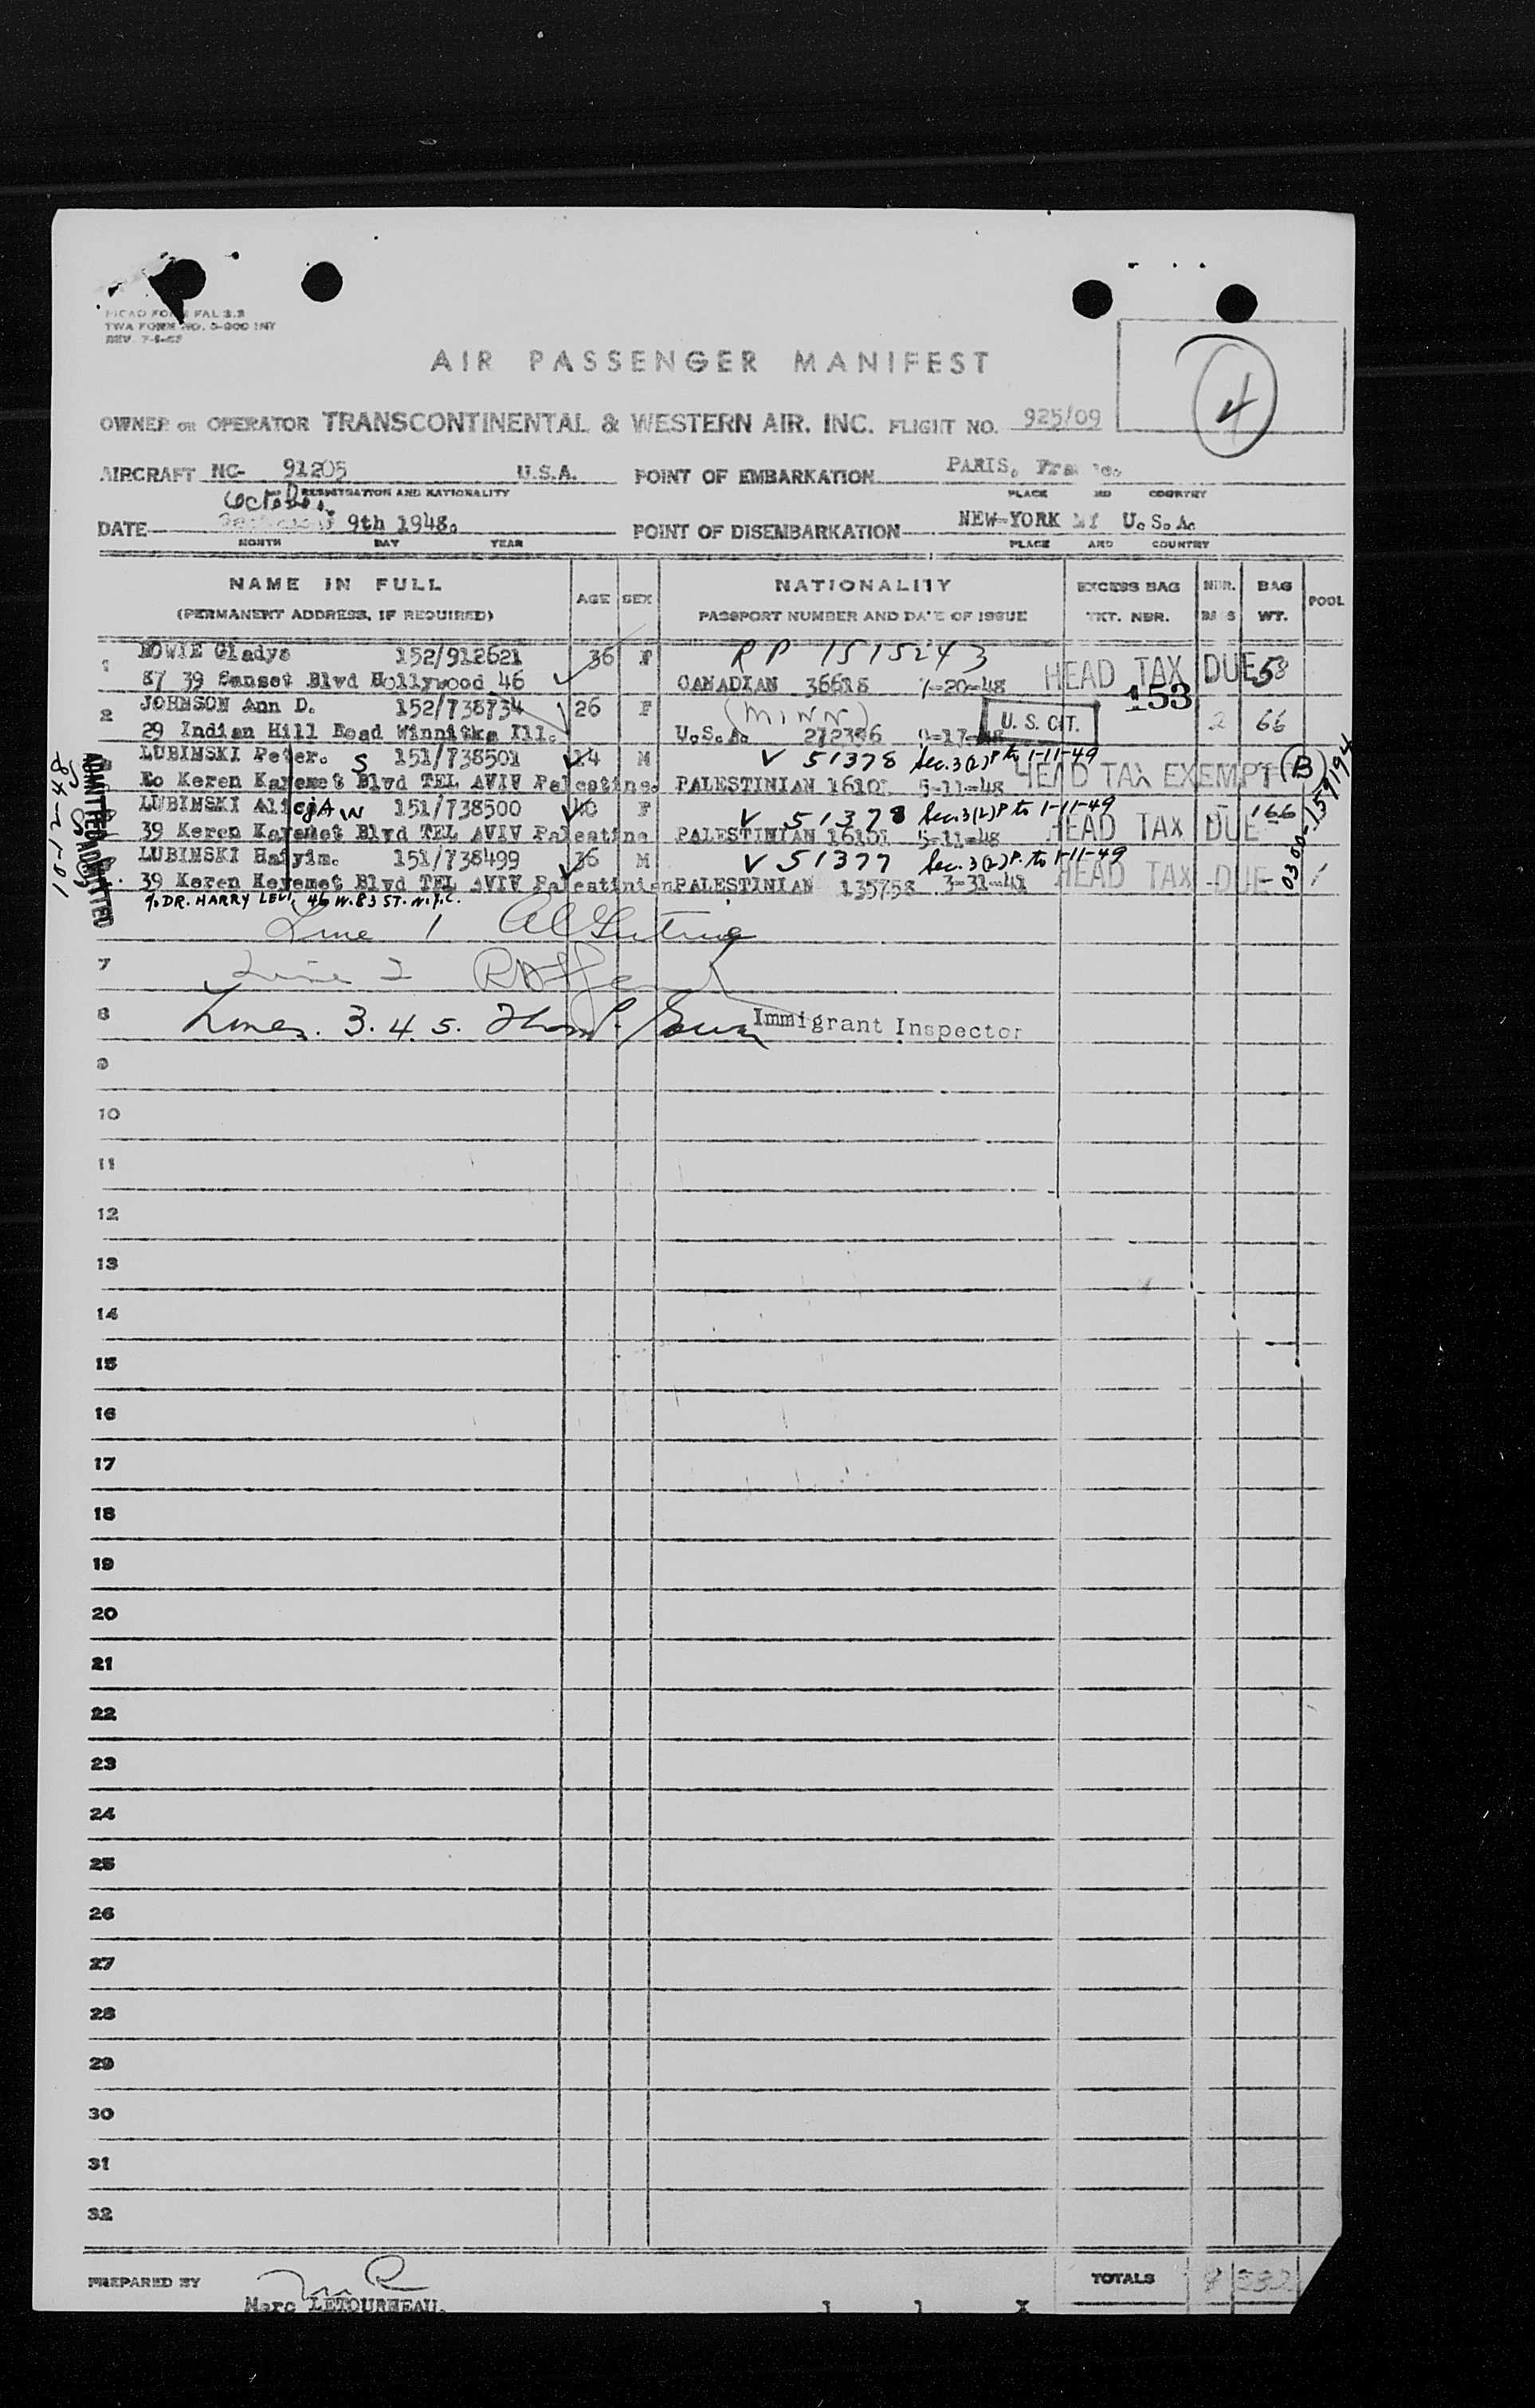 ICAO FORM FAL 3.2
TWA FORM NO. 5-900 INT
REV.
AIR PASSENGER MANIFEST
4
OWNER OR OPERATOR TRANSCONTINENTAL & WESTERN AIR, INC. FLIGHT NO. 925/09
AIRCRAFT NC- 91205 U.S.A. POINT OF EMBARKATION PARIS,
REGISTRATION AND NATIONALITY PLACE AND COUNTRY
October
DATE 9th 1948. POINT OF DISEMBARKATION NEW-YORK NY U.S.A.
MONTH DAY YEAR PLACE AND COUNTRY
NAME IN FULL AGE SEX NATIONALITY EXCESS BAG NBR. BAG POOL
(PERMANENT ADDRESS, IF REQUIRED) PASSPORT NUMBER AND DATE OF ISSUE TKT. NBR. BAGS WT.
1 BOWIE Gladys 152/912621 36 F RP 1515243 HEAD TAX DUE 58
87 39 Sunset Blvd Hollywood 46 CANADIAN 36618 7-20-48 153
2 JOHNSON Ann D. 152/738734 26 F (MINN) U. S. CIT. 2 66
29 Indian Hill Road Winnitka Ill. U.S.A. 212386
LUBINSKI Peter. S 151/738501 14 M V 51378 Sec. 3(2) P to 1-11-49 HEAD TAX EXEMPT B
Keren Kayemet Blvd TEL AVIV Palestine. PALESTINIAN 5-11-48
LUBINSKI AlicjA W 151/738500 40 F V 51378 Sec. 3(2) P to 1-11-49 HEAD TAX DUE 166
39 Keren Kayemet Blvd TEL AVIV Palestine PALESTINIAN 5-11-48
LUBINSKI 151/738499 M V 51377 Sec. 3(2) P. to 1-11-49 HEAD TAX DUE
39 Keren Keyemet Blvd TEL AVIV Palestinian PALESTINIAN 135758 3-31-41
% DR. HARRY LEVI, 46 W. 83 ST. N.Y.C.
10-12-48
ADMITTED
ADMITTED
0300-159194
Line 1
7 Line 2
8 Lines. 3. 4. 5. Immigrant Inspector
9
10
11
12
13
14
15
16
17
18
19
20
21
22
23
24
25
26
27
28
29
30
31
32
PREPARED BY TOTALS 232
Marc LETOURNEAU.